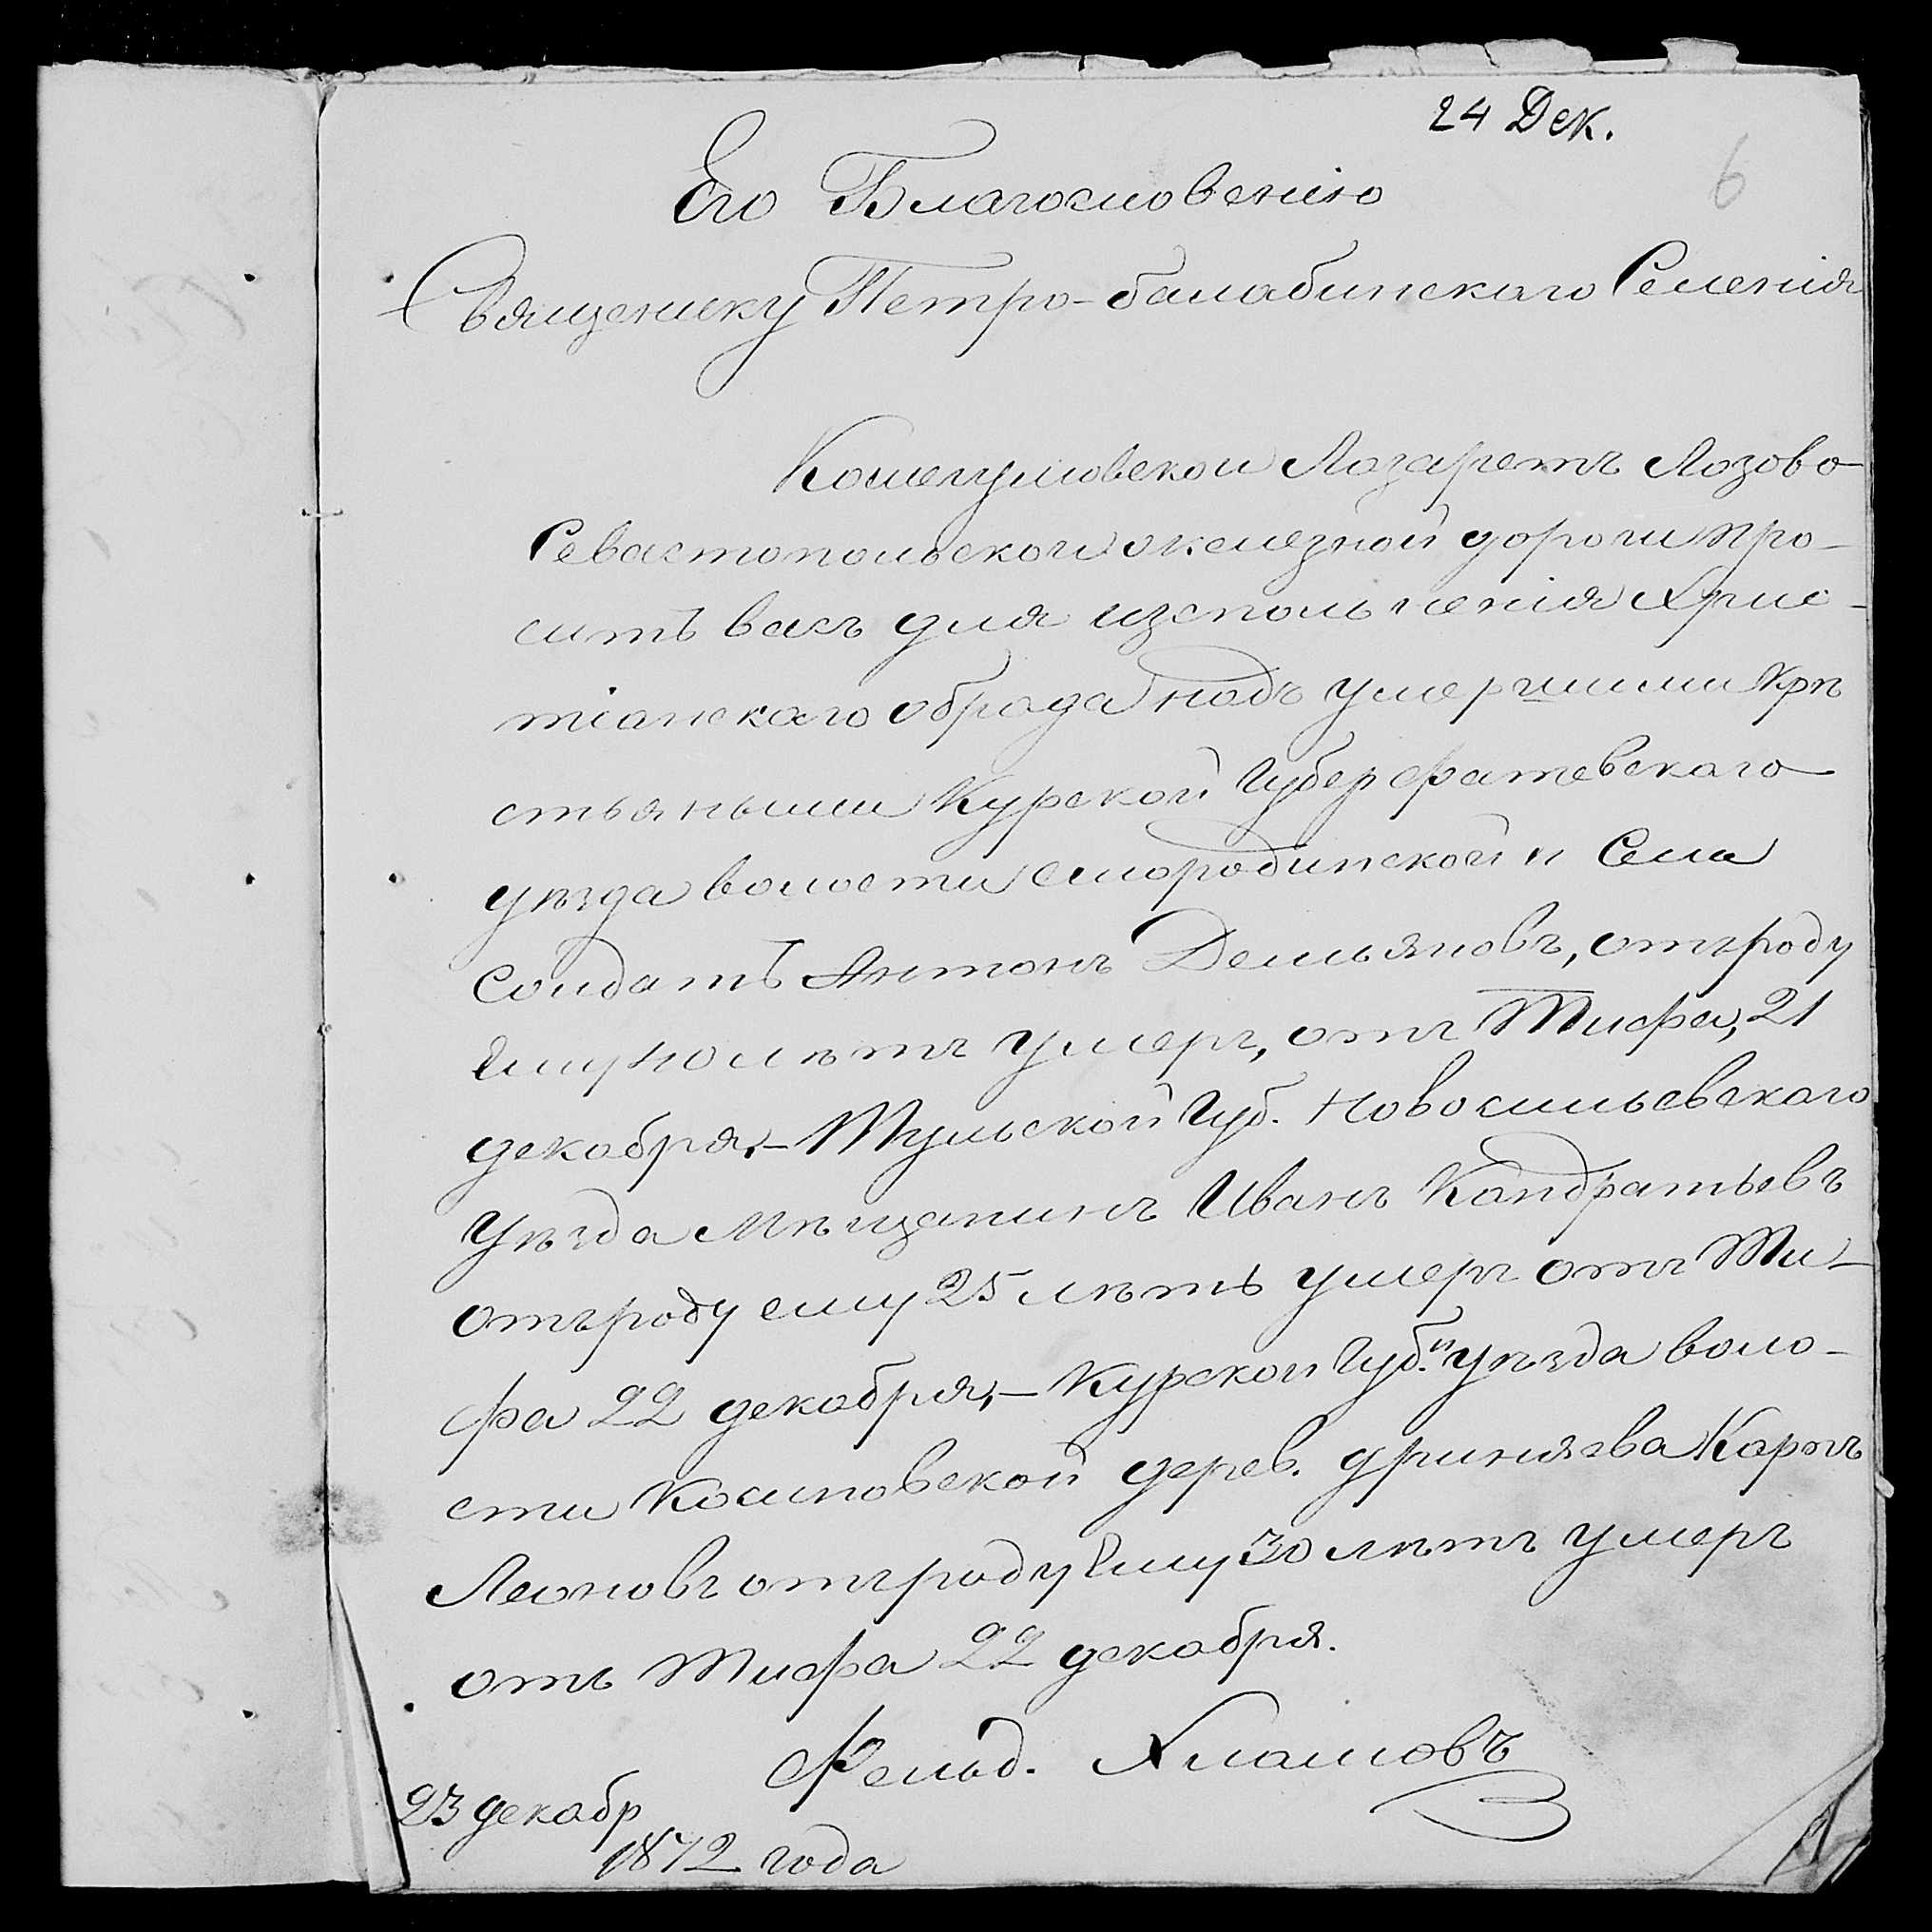 24 Дек.
6
Его Благословенію
Священику Петро-балабинскаго Селенія
Кошегумовской Лазаретъ Лозово-
Севастопольской железной дороги про-
ситъ васъ для изсполненія Хрис-
тіанскаго обрада надъ умершими Крѣ
стьяными Курской Губер Фатевскаго
уѣзда волости смородинской и Села
Солдатъ Антонъ Демьяновъ, отъроду
Ему 40 лѣтъ умеръ, отъ Тифа, 21
декабря,- Тульской Губ. Новосильевскаго
Уѣзда Мѣщанинъ Иванъ Кандратьевъ
отъроду ему 25 лѣтъ умеръ отъ Ти-
фа 22 декабря,- Курской Губ. и уѣзда воло-
сти Косиновской дерев. Карпъ
Леоновъ отъроду Ему 30 лѣтъ умеръ
отъ Тифа 22 декабря.
Фельд. Хламовъ
23 декабр
1872 года